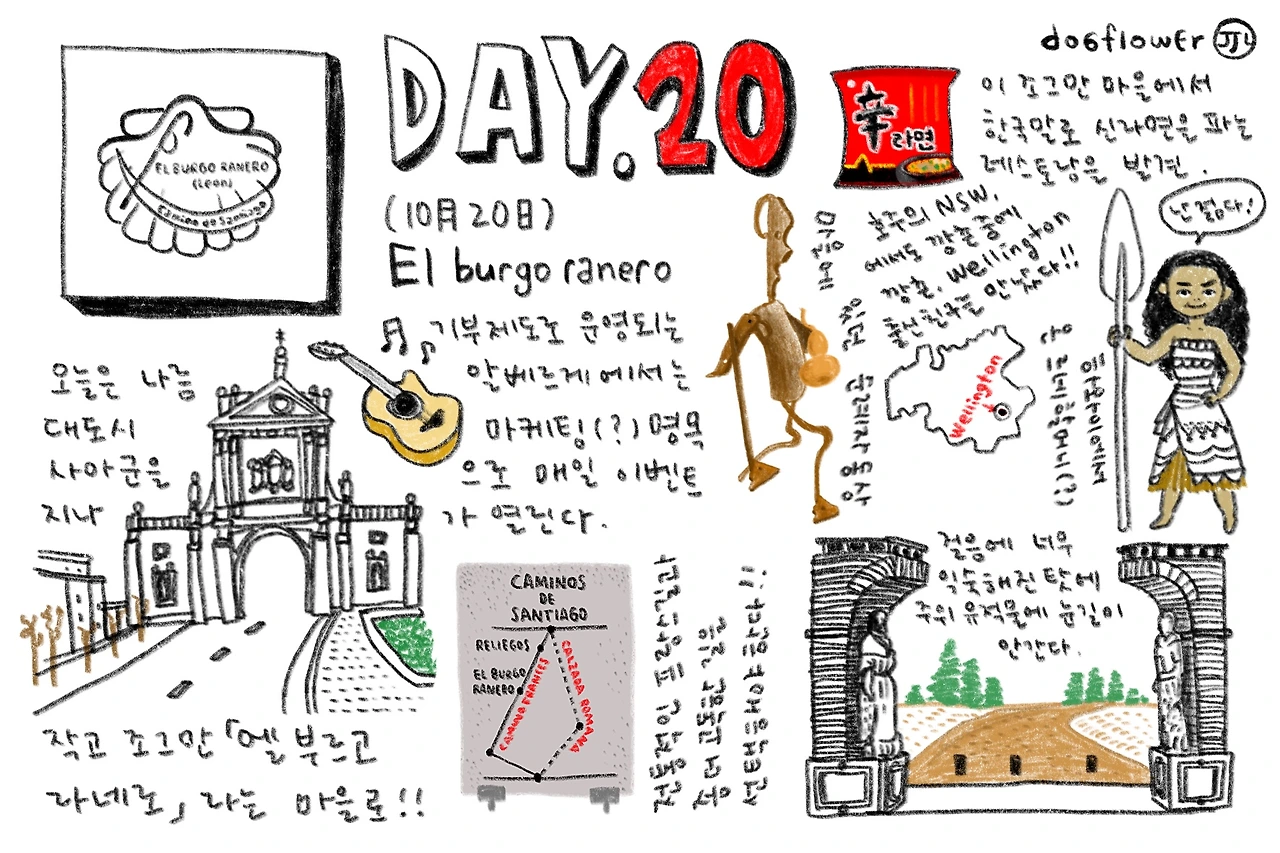 dogflower JJL
DAY.20
(10月20日)
El burgo ranero
EL BURGO RANERO
(León)
Camino de Santiago
오늘은 나름
대도시
사아군을
지나
작고 조그만 「엘 부르고
라네로」 라는 마을로!!
기부제도로 운영되는
알베르게에서는
마케팅(?) 명목
으로 매일 이벤트
가 열린다.
辛라면
이 조그만 마을에서
한국말로 신라면을 파는
레스토랑을 발견.
마을에 있던 순례자 동상
호주의 NSW.
에서도 깡촌중에
깡촌, wellington
출신친구를 만났다!!
Wellington
난 젊다!
하와이에서
온 모아나할머니(?)
CAMINOS
DE
SANTIAGO
RELIEGOS
EL BURGO
RANERO
CAMINO FRANCES
CALZADA ROMANA
전통적인 프랑스길과
중 고독한 길을
선택해야한다!!
걸음에 너무
익숙해진 탓에
주위 유적물에 눈길이
안간다.